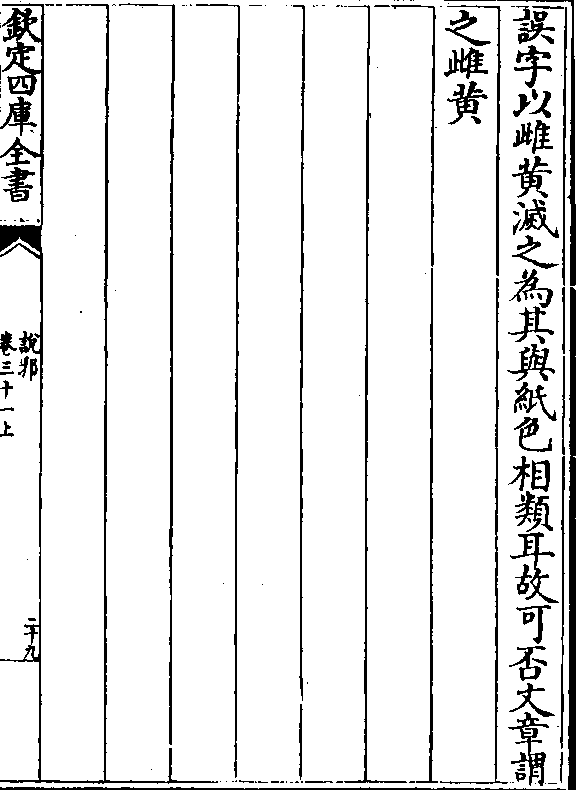 誤字以雌黄滅之為其與紙色相類耳故可否文章謂
之雌黄
欽定四庫全書
說郛
卷三十一上
二十九